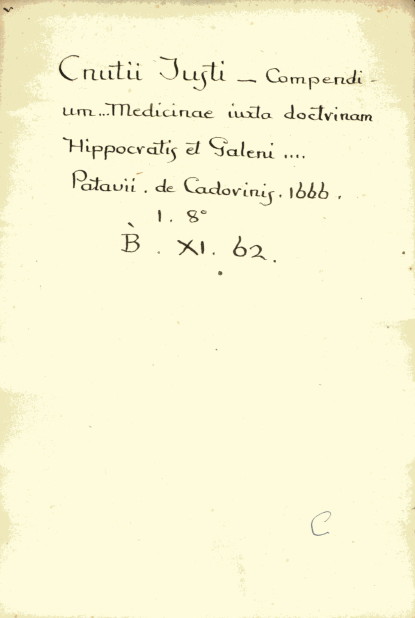 Cnutii Justi — Compendi-
um...Medicinae iuxta doctrinam
Hippocratis et Galeni ....
Patavii . de Cadorinis . 1666 .
1. 8°
B̀ . XI. 62 .
C